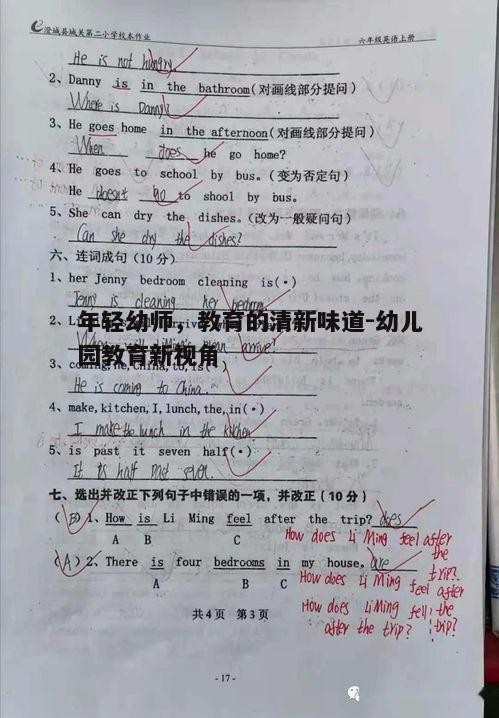 澄城县城关第二小学校本作业 六年级英语上册
He is not hungry
2、Danny is in the bathroom(对画线部分提问)
Where is Danny?
3、He goes home in the afternoon(对画线部分提问)
When does he go home?
4、He goes to school by bus。(变为否定句)
He doesn't go to shool by bus.
5、She can dry the dishes。(改为一般疑问句)
Can she dry the dishes?
六、连词成句(10分)
1、her Jenny bedroom cleaning is(.)
Jenny is cleaning her bedroom
年轻幼师，教育的清新味道-幼儿
园教育新视角
2、Li
arrive?
3、coming,he,China,to,is(.)
He is coming to China.
4、make,kitchen,I,lunch,the,in(.)
I make the lunch in the kitchen
5、is past it seven half(.)
It is half past seven.
七、选出并改正下列句子中错误的一项，并改正(10分)
(B)1、How is Li Ming feel after the trip? does
A B C
How does Li Ming feel after the trip?
(A)2、There is four bedrooms in my house。are
A B C
How does Li Ming feel after the trip?
How does Li Ming fell after the trip?
共4页 第3页
- 17 -